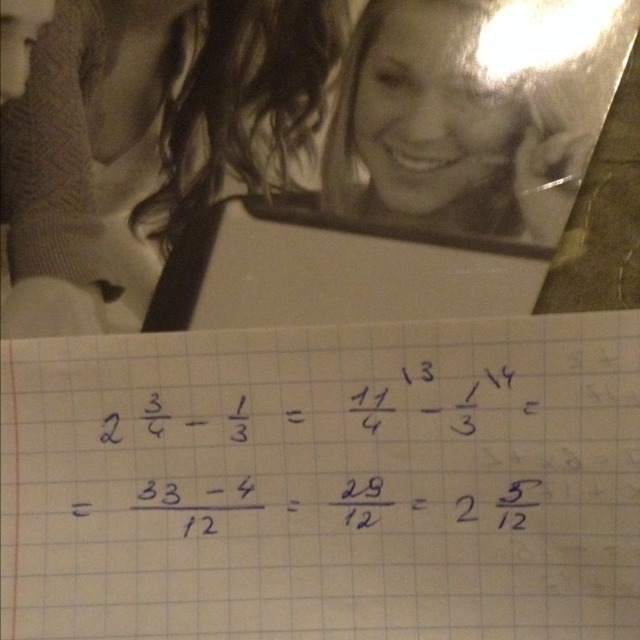 2 3/4 - 1/3 = 11/4 \3 - 1/3 \4 =
= 33 - 4/12 = 29/12 = 2 5/12